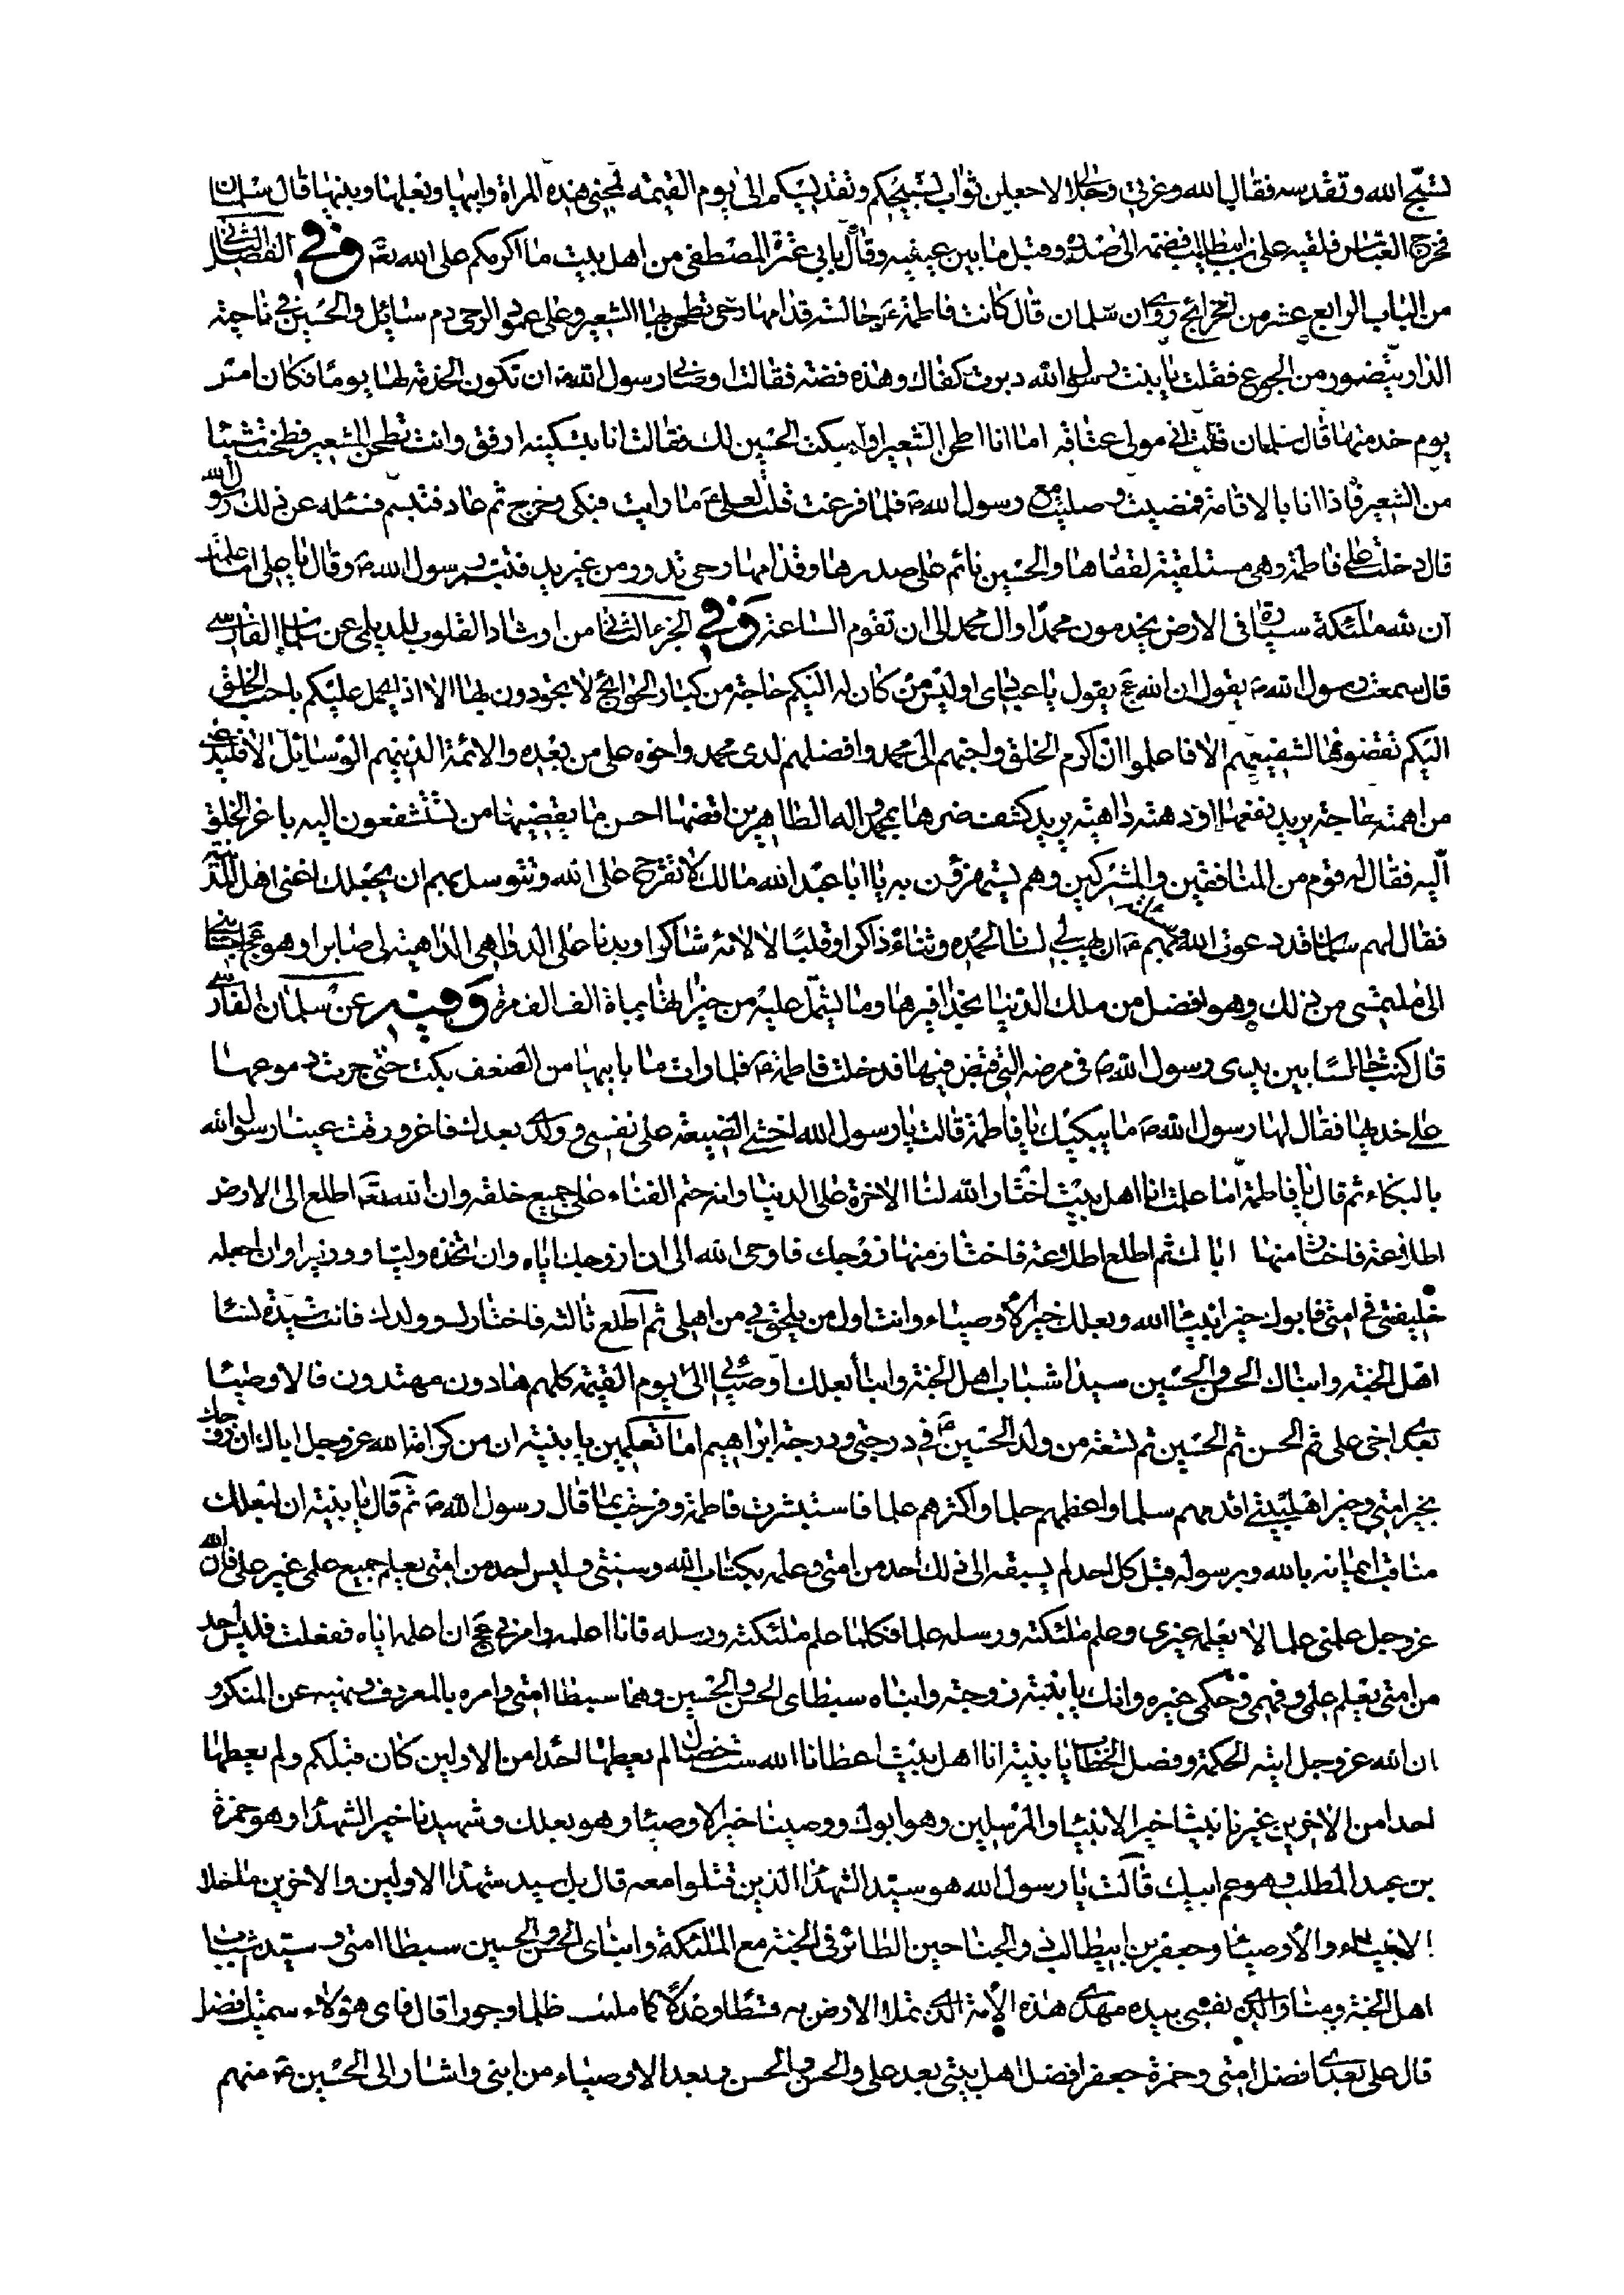 تسبح الله وتقدسه فقال الله وعزتي وجلالي لاجعلن ثواب تسبيحكم وتقديسكم الى يوم القيمة لمحبي هذه المراة وابيها وبعلها وبنيها قال سلمان
فخرج العباس فلقيه علي بن ابيطالب فضمه الى صدره وقبل ما بين عينيه وقال بابي عترة المصطفى من اهل بيت ما اكرمكم على الله تعه وفي الفصل الثاني
من الباب الرابع عشر من الخرائج روى ان سلمان قال كانت فاطمة ع جالسة قدامها رحى تطحن بها الشعير وعلى عمود الرحى دم سائل والحسين في ناحية
الدار يتضور من الجوع فقلت يا بنت رسول الله دبرت كفاك وهذه فضة فقالت اوصاني رسول الله ص ان تكون الخدمة لها يوما فكان امس
يوم خدمتها قال سلمان قلت اني مولى عتاقة اما انا اطحن الشعير او اسكت الحسين لك فقالت انا بتسكينه ارفق وانت تطحن الشعير فطحنت شيئا
من الشعير فاذا انا بالاقامة فمضيت وصليت مع رسول الله ص فلما فرغت قلت لعلي ع ما رايت فبكى وخرج ثم عاد فتبسم فسئله عن ذلك رسول الله
قال دخلت على فاطمة وهي مستلقية لقفاها والحسين نائم على صدرها وقدامها رحى تدور من غير يد فتبسم رسول الله ص وقال يا علي اما علمت
ان لله ملئكة سيارة في الارض يخدمون محمدا وال محمد الى ان تقوم الساعة وفي الجزء الثاني من ارشاد القلوب للديلمي عن سلمان الفارسي
قال سمعت رسول الله ص يقول ان الله عج يقول يا عبادي اوليس من كان له اليكم حاجة من كبار الحوائج لا تجودون بها الا اذ يحمل عليكم باحب الخلق
اليكم تقضونها لشفيعهم الا فاعلموا ان اكرم الخلق واحبهم الى محمد وافضلهم لدى محمد واخوه علي من بعده والائمة الذينهم الوسائل الا فليدعني
من اهمته حاجة يريد نفعها او دهته داهية يريد كشف ضرها بمحمد واله الطاهرين اقضها احسن ما يقضيها من تستشفعون اليه باعز الخلق
اليه فقال له قوم من المنافقين والمشركين وهم يستهزؤن به يا ابا عبد الله ما لك لا تقترح على الله وتتوسل بهم ان يجعلك اغنى اهل المدينة
فقال لهم سلمان قد دعوت الله وسئلته بهم ع ان يهب لي لسانا لحمده وثنائه ذاكرا وقلبا لالائه شاكرا وبدنا على الدواهي الداهية لي صابرا وهو عج اجابني
الى ملتمسي من ذلك وهو افضل من ملك الدنيا بحذافيرها وما تشتمل عليه من خيراتها بماة الف الف مرة وفيه عن سلمان الفارسي
قال كنت جالسا بين يدي رسول الله ص في مرضه التي قبض فيها قد دخلت فاطمة ع فلما رات ما بابيها من الضعف بكت حتى جرت دموعها
على خديها فقال لها رسول الله ص ما يبكيك يا فاطمة قالت يا رسول الله اخشى الضيعة على نفسي وولدي بعدك فاغرورقت عينا رسول الله
بالبكاء ثم قال يا فاطمة اما علمت انا اهل بيت اختار الله لنا الاخرة على الدنيا وانه حتم الفناء على جميع خلقه وان الله تعه اطلع الى الارض
اطلاعة فاختار منها اباك ثم اطلع اطلاعة فاختار منها زوجك فاوحى الله الى ان ازوجك اياه وان اتخذه وليا ووزيرا وان اجعله
خليفتي في امتي فابوك خير انبياء الله وبعلك خير الاوصياء وانت اول من يلحق بي من اهلي ثم اطلع ثالثة فاختارك وولدك فانت سيدة نساء
اهل الجنة وابناك الحسن والحسين سيدا شباب اهل الجنة وابناء بعلك اوصيائي الى يوم القيمة كلهم هادون مهتدون فالاوصياء
بعدي اخي علي ثم الحسن ثم الحسين ثم تسعة من ولد الحسين ع في درجتي ودرجة ابراهيم اما تعلمين يا بنية ان من كرامة الله عزوجل اياك ان زوجك
بخير امتي وخير اهل بيتي اقدمهم سلما واعظمهم حلما واكثرهم علما فاستبشرت فاطمة وفرحت بما قال رسول الله ص ثم قال يا بنية ان لبعلك
مناقب ايمانه بالله وبرسوله قبل كل احد لم يسبقه الى ذلك احد من امتي وعلمه بكتاب الله وسنتي وليس احد من امتي يعلم جميع علمي غير علي فان الله
عزوجل علمني علما لا يعلمه غيري وعلم ملئكته ورسله علما فكلما علم ملئكته ورسله فانا اعلمه وامرني عج ان اعلمه اياه ففعلت فليس احد
من امتي يعلم علمي وفهمي وحكمي غيره وانك يا بنية زوجته وابناه سبطاي الحسن والحسين وهما سبطا امتي وامره بالمعروف ونهيه عن المنكر و
ان الله عزوجل اتيه الحكمة وفصل الخطاب يا بنية انا اهل بيت اعطانا الله ست خصال لم يعطها احدا من الاولين كان قبلكم ولم يعطها
احدا من الاخرين غيرنا نبينا خير الانبياء والمرسلين وهو ابوك ووصينا خير الاوصياء وهو بعلك وشهيدنا خير الشهداء وهو حمزة
بن عبد المطلب وهو عم ابيك قالت يا رسول الله هو سيد الشهداء الذين قتلوا معه قال بل سيد شهداء الاولين والاخرين ما خلا
الانبياء والاوصياء وجعفر بن ابيطالب ذي الجناحين الطائر في الجنة مع الملئكة وابناي الحسن والحسين سبطا امتي وسيدا شباب
اهل الجنة ومنا والذي نفسي بيده مهدي هذه الامة الذي تملا الارض به قسطا وعدلا كما ملئت ظلما وجورا قال فاي هؤلاء سميت افضل
قال علي بعدي افضل امتي وحمزة جعفر افضل اهل بيتي بعد علي والحسن والحسن وبعد الاوصياء من ابني واشار الى الحسين ع منهم